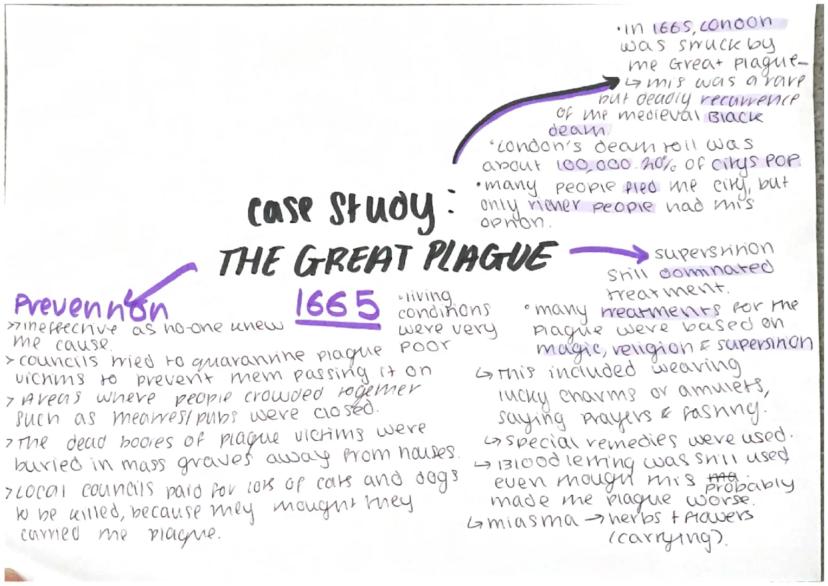 case study:
THE GREAT PLAGUE
1665
• In 1665, London
was struck by
the Great Plague –
↳ this was a rare
but deadly recurrence
of the medieval Black
death.
• London's death toll was
about 100,000. 20% of citys pop
• many people fled the city, but
only richer people had this
option.
superstition
still dominated
treatment.
• many treatments for the
plague were based on
magic, religion & superstition
↳ this included wearing
lucky charms or amulets,
saying prayers & fasting.
↳ special remedies were used.
↳ Bloodletting was still used
even though this probably
made the plague worse.
↳ miasma → herbs + flowers
(carrying).
• living
conditions
were very
poor
Prevention
> ineffective as no-one knew
the cause.
> councils tried to quarantine plague
victims to prevent them passing it on
> Areas where people crowded together
such as theatres/pubs were closed.
> The dead bodies of plague victims were
buried in mass graves away from houses.
> Local councils paid for lots of cats and dogs
to be killed, because they thought they
carried the plague.